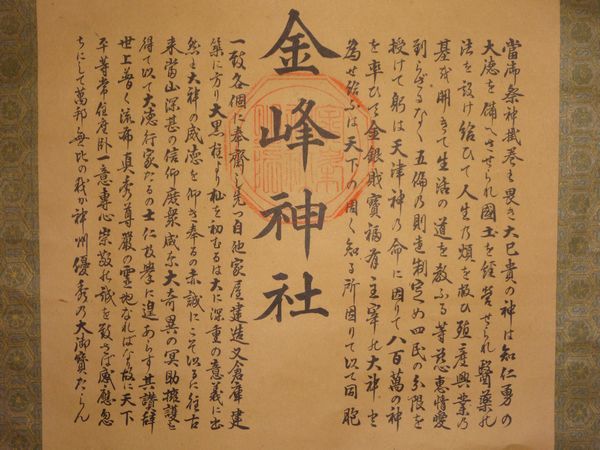 當御祭神掛巻も畏き大己貴の神は知仁勇の
大徳を備へさせられ國土を經營せられ醫藥の
法を設け給ひて人生の煩を救ひ殖産興業の
基を開きて生活の道を教ふる等慈恵情愛
到らざるなく五倫の則造制定め四民の分限を
授けて躬は天津神の命に因りて八百萬の神
を率ひて金銀財寶福有主宰の大神と
為せ給ふは天下の周く知る所因りて以て同胞
金峰神社
一致各個に奉齋し先つ自他家屋建造又倉庫建
築に方り大黒柱より祀を初むるは大に深重の意義に出
然も大神の威徳を仰き奉るの赤誠にこそ以るに往古
来當山深甚の信仰廣衆咸な大奇異の冥助擁護を
得て以て大徳行家たるの士仁枚挙に遑あらす其讃辞
世上普く流布真秀尊嚴の霊地なればなり故に天下
平等常住座卧一意專心崇敬の誠を致さは感應忽
ちにして萬邦無比の我か神州優秀の大御寶たらん